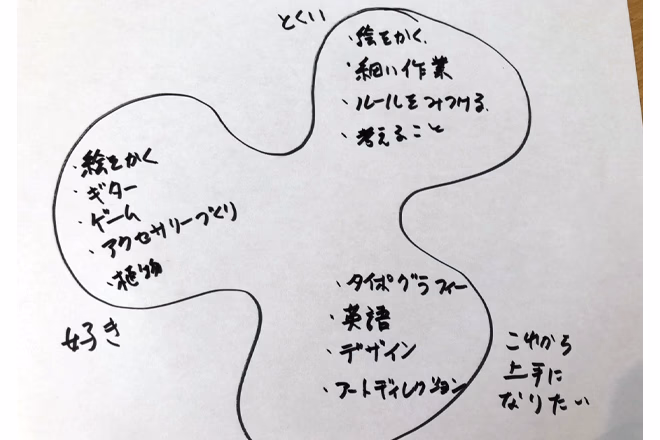 とくい
・絵をかく
・細い作業
・ルールをみつける
・考えること
・絵をかく
・ギター
・ゲーム
・アクセサリーづくり
・植物
好き
・タイポグラフィー
・英語
・デザイン
・アートディレクション
これから
上手に
なりたい